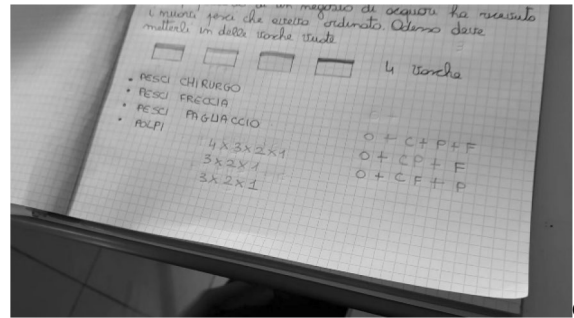 di un negozio di acquari ha ricevuto
i nuovi pesci che aveva ordinato. Adesso deve
metterli in delle vasche vuote
4 vasche
• PESCI CHIRURGO
• PESCI FRECCIA
• PESCI PAGLIACCIO
• POLPI
4x3x2x1
3x2x1
3x2x1
O + C + P + F
O + CP + F
O + CF + P